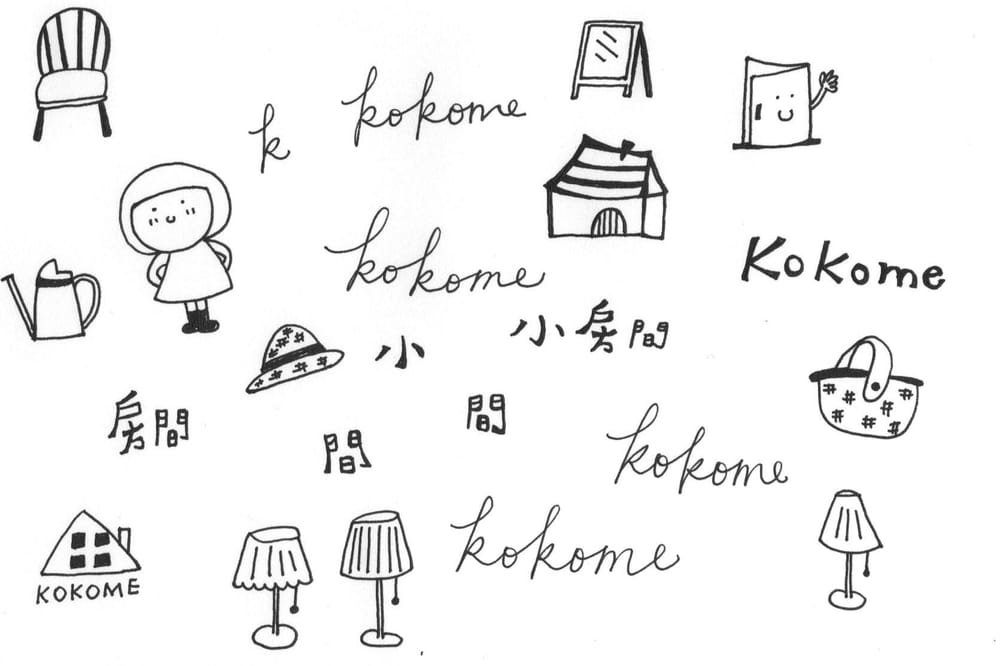 k
kokome
kokome
Kokome
小
小房間
房間
間
間
kokome
kokome
KOKOME